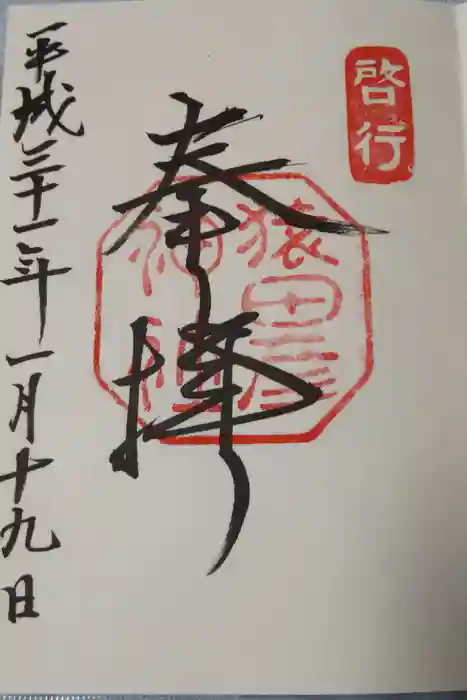 啓行
猿田彦
神社
奉拝
平成三十一年一月十九日